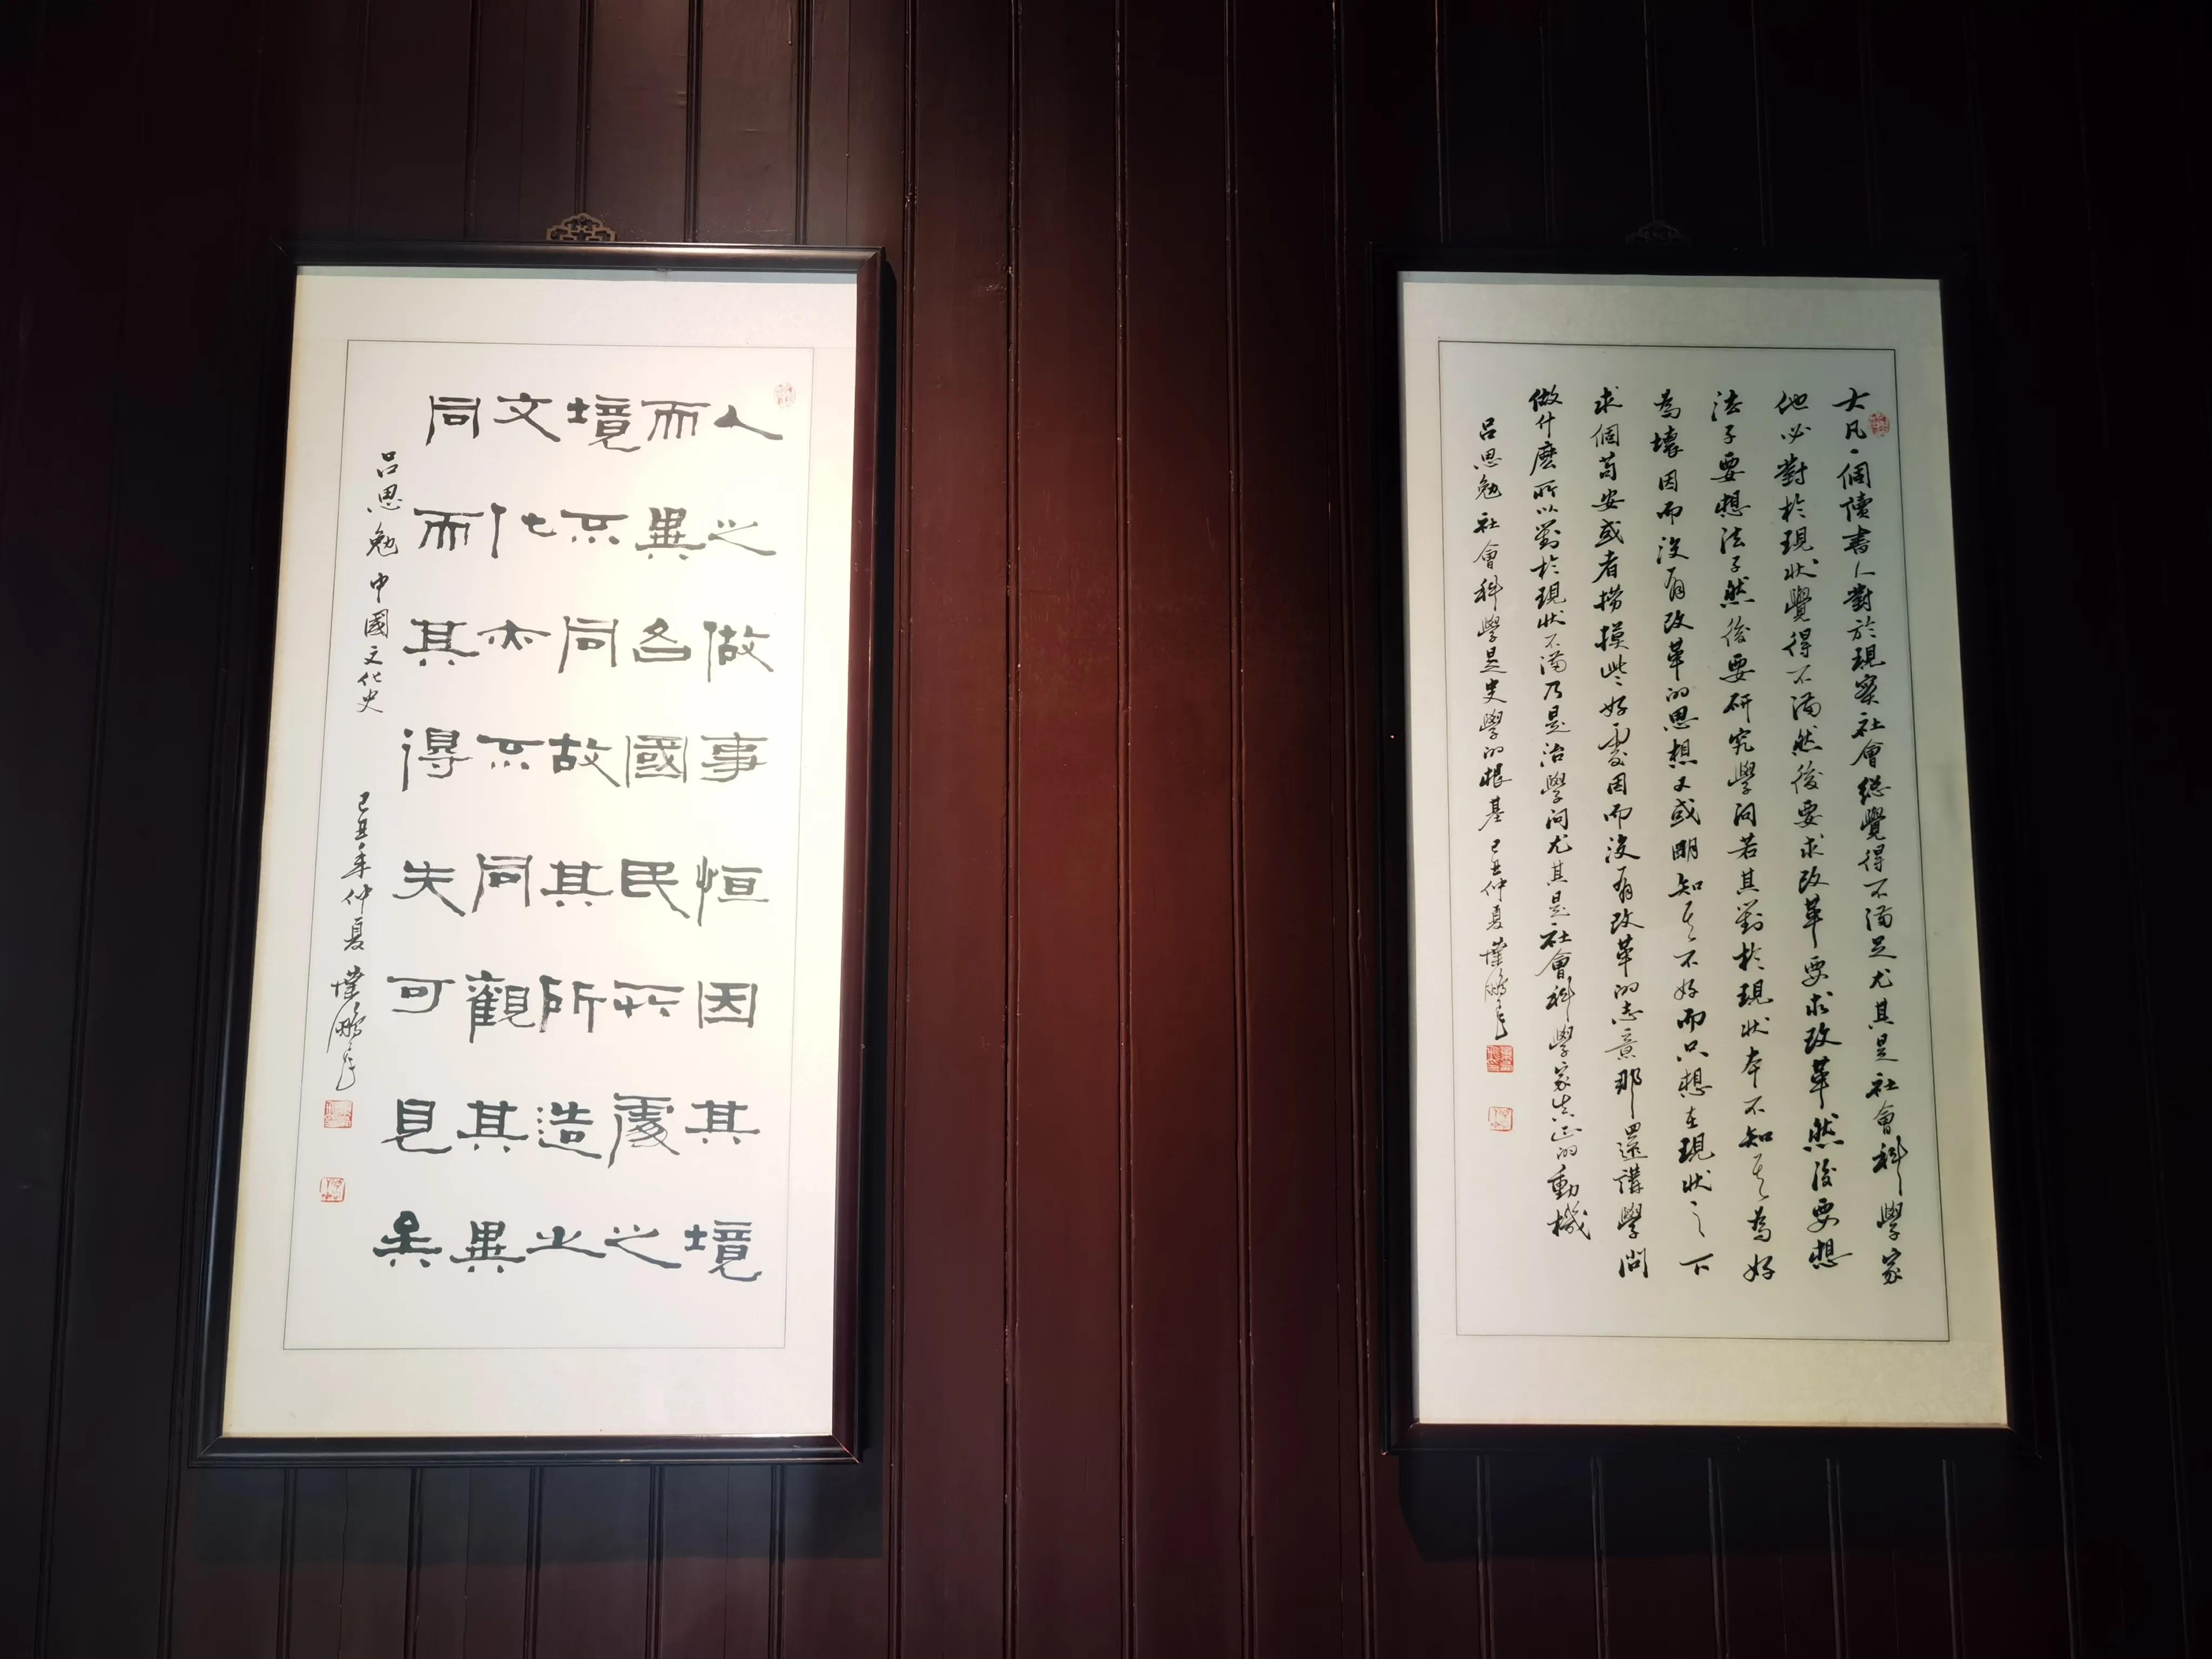 大凡一個讀書人對於現實社會總覺得不滿足尤其是社會科學家
他必對於現狀覺得不滿然後要求改革要求改革然後要想
法子要想法子然後要研究學問若其對於現狀本不知其為好
為壞因而沒有改革的思想又或明知其不好而只想在現狀之下
求個苟安或者撈摸些好處因而沒有改革的志意那還講學問
做什麼所以對於現狀不滿乃是治學問尤其是社會科學家真正的動機
呂思勉 社會科學是史學的根基 己丑仲夏 葉鵬飛
人之做事恒因其境
而異各國民所處之
境不同故其所造出
文化亦不同觀其異
同而其得失可見矣
呂思勉 中國文化史 己丑年仲夏 葉鵬飛